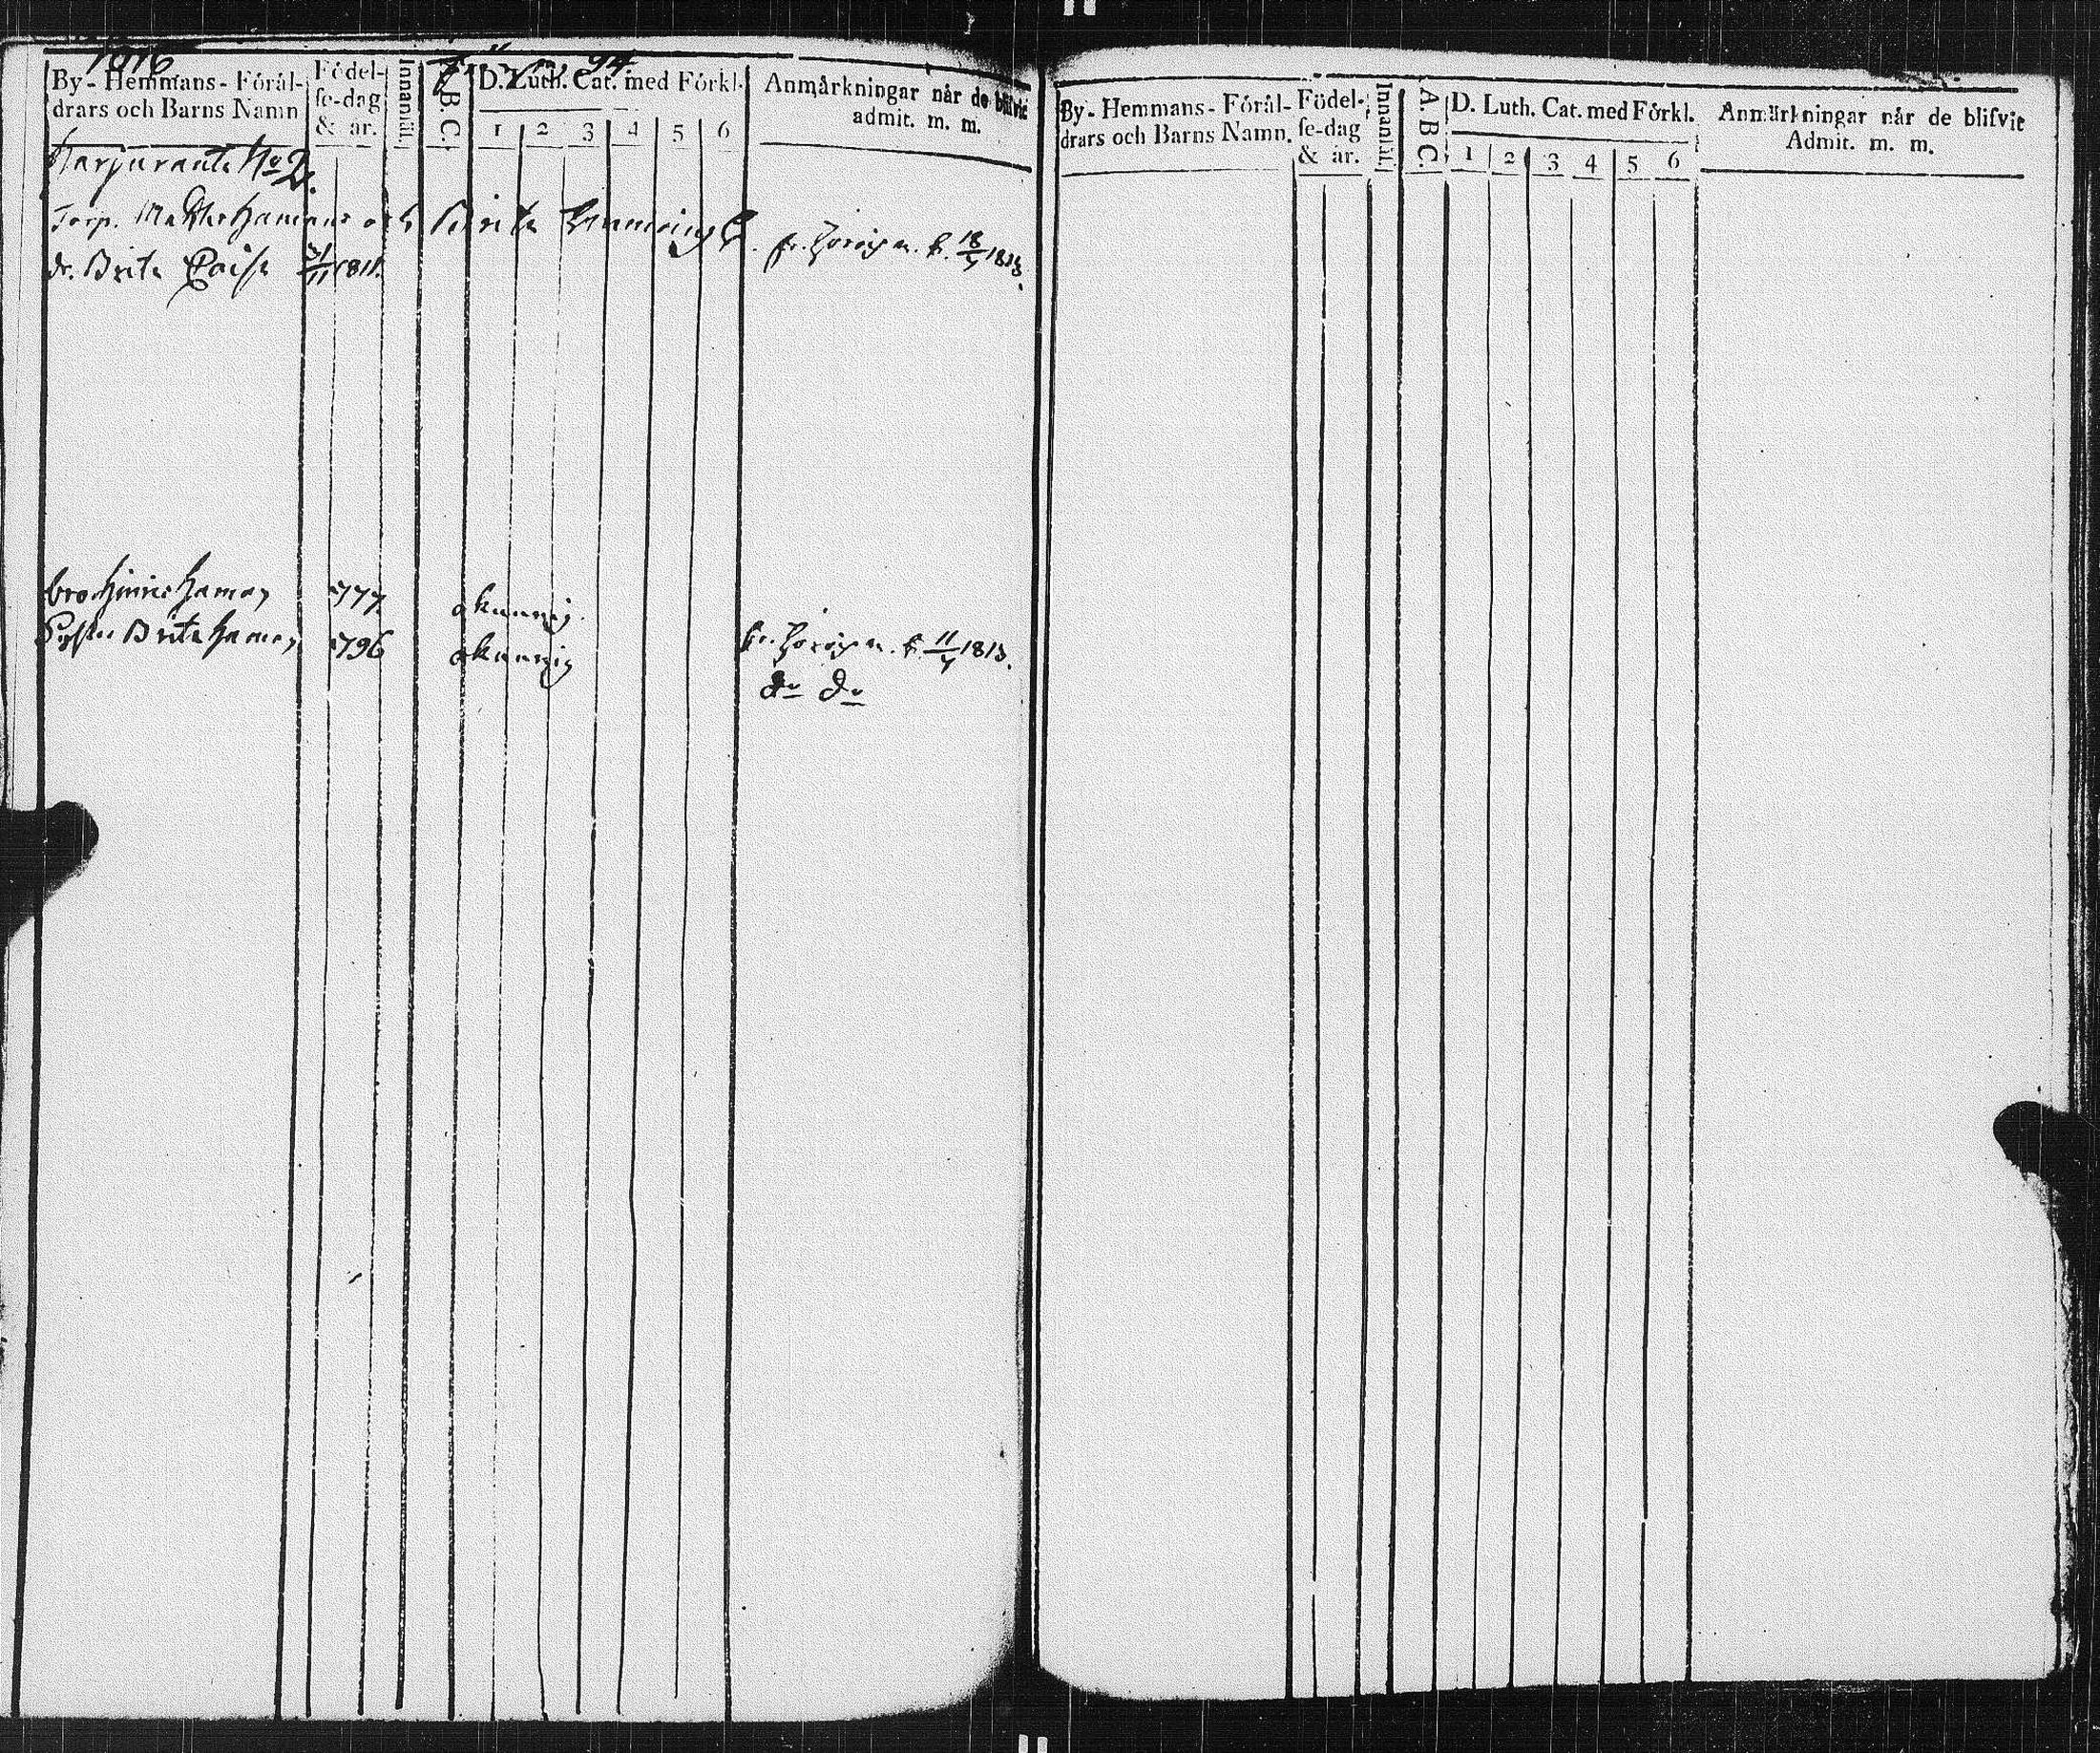 1816
By- Hemmans- Förål-
drars och Barns Namn
Födel-
se-dag
& år.
Innanläs.
A. B. C.
D. Luth. Cat. med Förkl.
1 2 3 4 5 6
Anmårkningar når de blifvit
admit. m. m.
Harjuranta No 2.
Torp. Matths och Brita
dr. Brita Caisa 1811.
18/7 1813.
bro. Hinric 1777 okunnig.
Syster Brita 1796 okunnig
11/7 1813.
do do
By- Hemmans- Förål-
drars och Barns Namn.
Födel-
se-dag
& år.
Innanläs.
A. B. C.
D. Luth. Cat. med Förkl.
1 2 3 4 5 6
Anmärkningar når de blifvit
Admit. m. m.